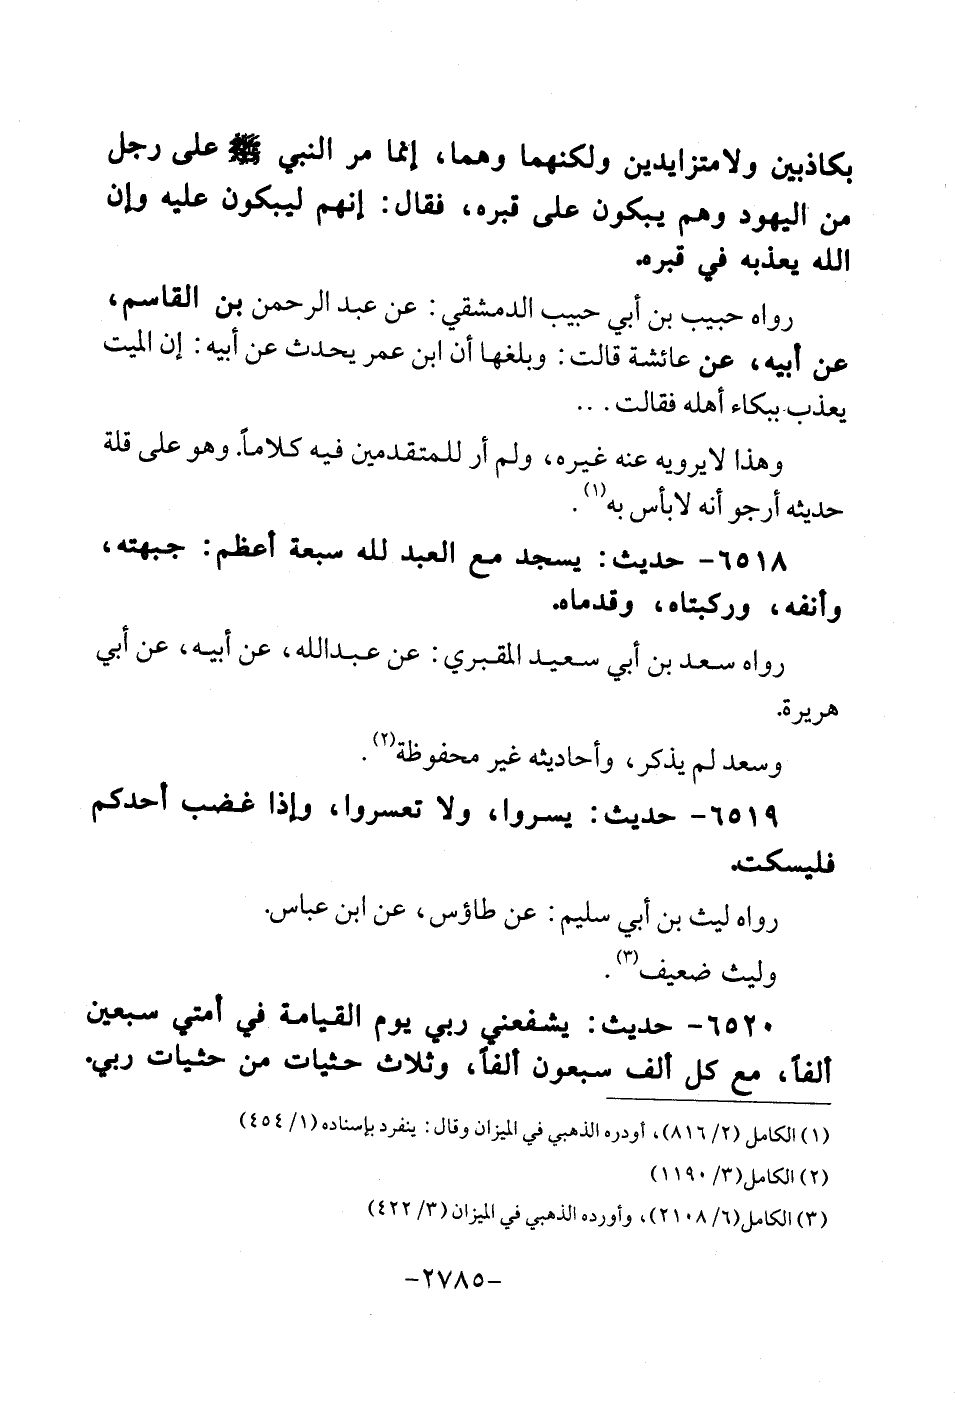 بكاذبين ولامتزايدين ولكنهما وهما، إنما مر النبي ﷺ على رجل
من اليهود وهم يبكون على قبره، فقال: إنهم ليبكون عليه وإن
الله يعذبه في قبره.
رواه حبيب بن أبي حبيب الدمشقي: عن عبد الرحمن بن القاسم،
عن أبيه، عن عائشة قالت: وبلغها أن ابن عمر يحدث عن أبيه: إن الميت
يعذب ببكاء أهله فقالت...
وهذا لايرويه عنه غيره، ولم أر للمتقدمين فيه كلاماً. وهو على قلة
حديثه أرجو أنه لابأس به(١).
٦٥١٨- حديث: يسجد مع العبد لله سبعة أعظم: جبهته،
وأنفه، وركبتاه، وقدماه.
رواه سعد بن أبي سعيد المقبري: عن عبدالله، عن أبيه، عن أبي
هريرة.
وسعد لم يذكر، وأحاديثه غير محفوظة(٢).
٦٥١٩- حديث: يسروا، ولا تعسروا، وإذا غضب أحدكم
فليسكت.
رواه ليث بن أبي سليم: عن طاؤس، عن ابن عباس.
وليث ضعيف(٣).
٦٥٢٠- حديث: يشفعني ربي يوم القيامة في أمتي سبعين
ألفاً، مع كل ألف سبعون ألفاً، وثلاث حثيات من حثيات ربي.
(١) الكامل (٢/ ٨١٦)، أودره الذهبي في الميزان وقال: ينفرد بإسناده (١/ ٤٥٤)
(٢) الكامل(٣/ ١١٩٠)
(٣) الكامل(٦/ ٢١٠٨)، وأورده الذهبي في الميزان (٣/ ٤٢٢)
-٢٧٨٥-